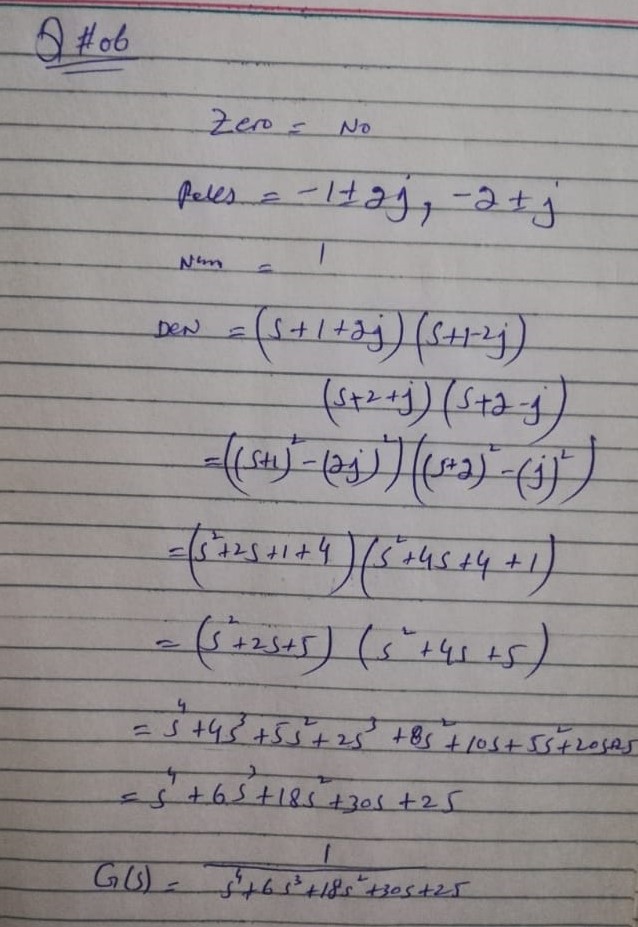 Q #06
Zero = No
Poles = -1±2j, -2±j
Num = 1
DEN = (s+1+2j) (s+1-2j)
(s+2+j) (s+2-j)
= ((s+1)² - (2j)²) ((s+2)² - (j)²)
= (s²+2s+1+4) (s²+4s+4+1)
= (s²+2s+5) (s²+4s+5)
= s⁴+4s³+5s²+2s³+8s²+10s+5s²+20s+25
= s⁴+6s³+18s²+30s+25
G(s) = 1 / s⁴+6s³+18s²+30s+25